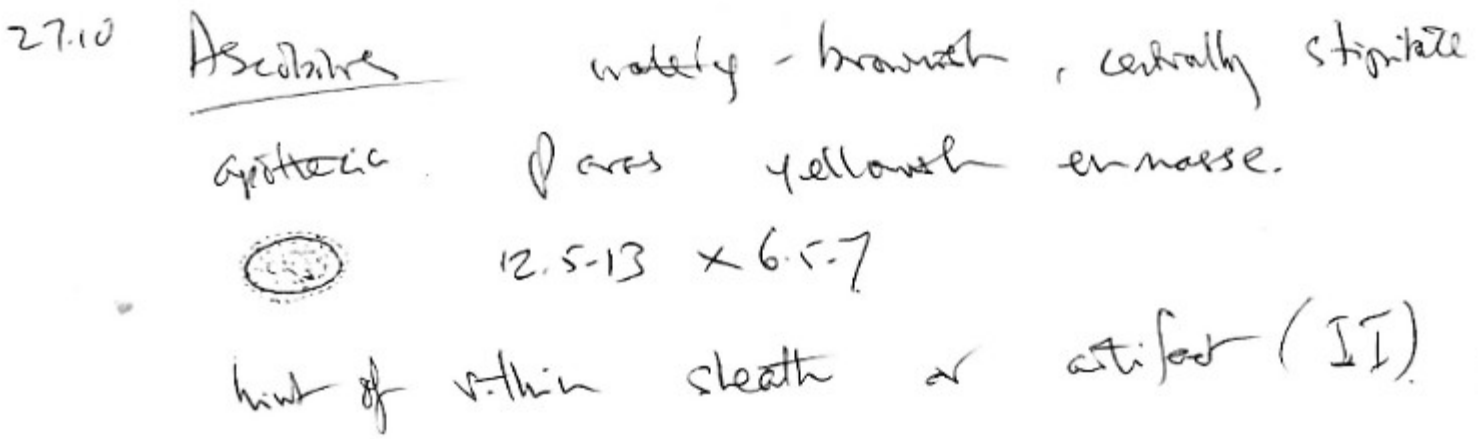 27.10 Ascobolus watery - brownish, centrally stipitate
apothecia. Paras yellowish en masse.
12.5-13 × 6.5-7
hint of within sheath or artifact (II)